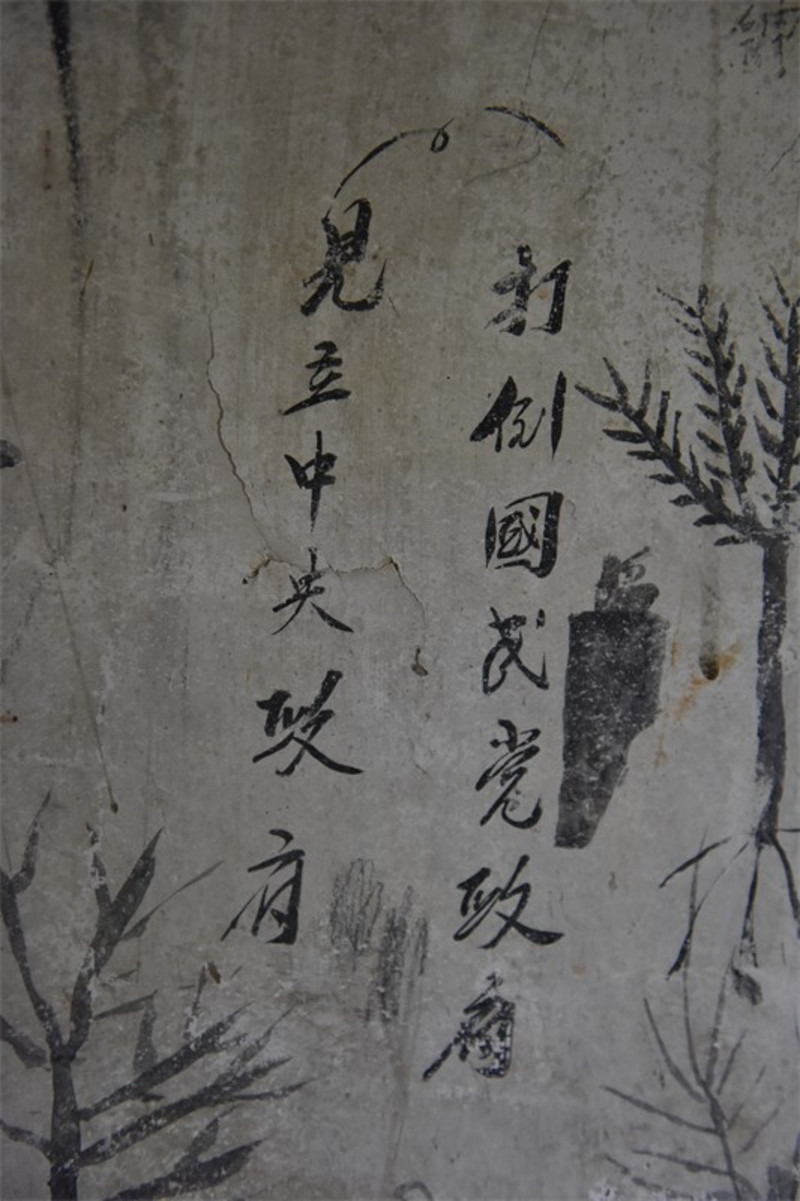 打倒國民党政府
見立中央政府